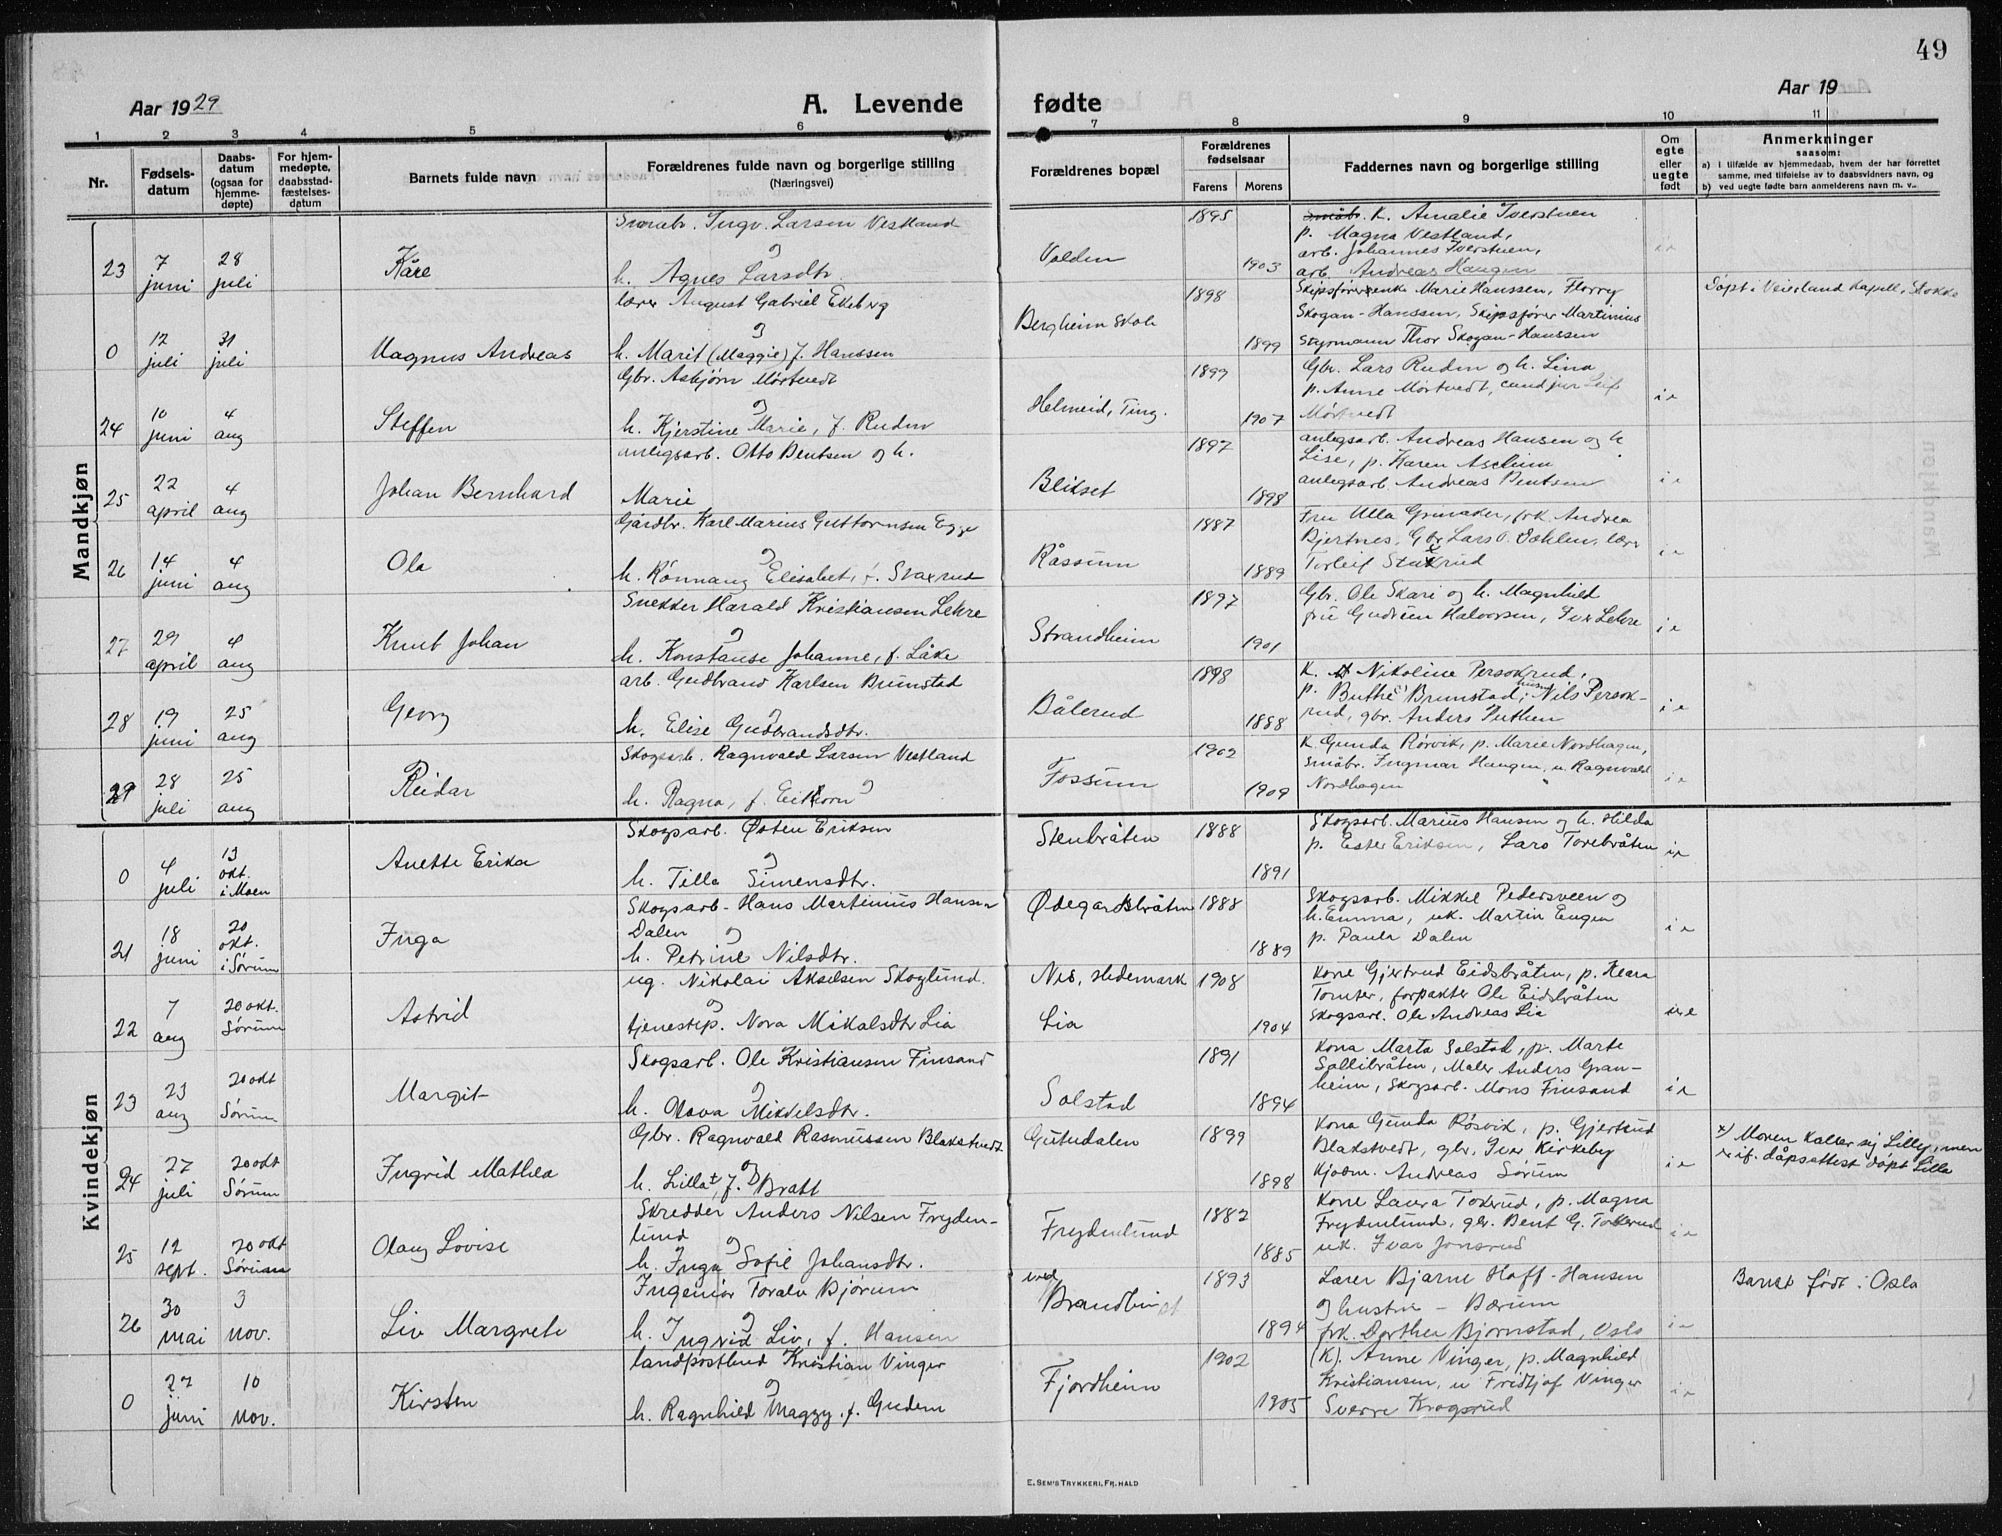 49
Aar 1929 A. Levende fødte Aar 19
1 2 3 4 5 6 7 8 9 10 11
Nr.
Fødsels-
datum
Daabs-
datum
(ogsaa for
hjemme-
døpte)
For hjem-
medøpte,
daabsstad-
fæstelses-
datum
Barnets fulde navn
Forældrenes fulde navn og borgerlige stilling
(Næringsvei)
Forældrenes bopæl
Forældrenes
fødselsaar
Farens Morens
Faddernes navn og borgerlige stilling
Om
egte
eller
uegte
født
Anmerkninger
saasom:
a) i tilfælde av hjemmedaab, hvem der har forrettet
samme, med tilføielse av to daabsvidners navn, og
b) ved uegte fødte barn anmelderens navn m. v.
Mandkjøn
23 7 juni 28 juli Kåre
Småbr. Ingv. Larsen Vestland
og
h. Agnes Larsdtr.
Volden 1895 1903
Småbr. K. Amalie Iverstuen
p. Magna Vestland,
arb. Johannes Iverstuen,
arb. Andreas Haugen
ie
0 12 juli 31 juli Magnus Andreas
lærer August Gabriel Ekeberg
og
h. Marit (Maggie) f. Hanssen
Bergheim Skole 1898 1899
Skipsførerenke Marie Hanssen, Florry
Skogan-Hanssen, Skipsfører Martinius
Styrmann Thor Skogan-Hanssen
Døpt i Veierland Kapell, Stokke
24 10 juni 4 aug Steffen
Gbr. Asbjørn Mørtvedt
og
h. Kjerstine Marie, f. Ruden
Helmeid, Ting. 1899 1907
Gbr. Lars Ruden og h. Lina
p. Anne Mørtvedt, cand jur Leif
Mørtvedt
ie
25 22 april 4 aug Johan Bernhard
anlegsarb. Otto Bentsen og h.
Marie
Blikset 1897 1898
anlegsarb. Andreas Hansen og h
Lise, p. Karen Aschim
anlegsarb Andreas Bentsen
ie
26 14 juni 4 aug Ola
Gårdbr. Karl Marius Guttormsen Egge
og
h. Rønnaug Elisabet, f. Staxrud
Råssum 1887 1889
Fru Ulla Grinaker, frk. Andrea
Bjertnes, Gbr Lars O. Dæhlen, lærer
Torleif Staxrud
ie
27 29 april 4 aug Knut Johan
Snekker Harald Kristiansen Lehre
og
h. Konstanse Johanne, f. Låke
Strandheim 1897 1901
Gbr. Ole Skari og h. Magnhild
fru Gudrun Halvorsen, Iver Lehre
ie
28 19 juni 25 aug Georg
arb. Gudbrand Karlsen Brunstad
og
h. Elise Gudbrandsdtr.
Bålerud 1898 1888
K. Nikoline Persokrud,
p. Buthe Brunstad, husm Nils Persok-
rud, gbr. Anders Puthen
ie
29 28 juli 25 aug Reidar
Skogsarb. Ragnvald Larsen Vestland
og
h. Ragna, f. Eikorn
Fossum 1902 1909
K. Gunda Rørvik, p. Marie Nordhagen,
småbr. Ingmar Haugen, u. Ragnvald
Nordhagen
ie
Kvindekjøn
0 4 juli 13 okt. i Moen Anette Erika
Skogsarb. Østen Eriksen
og
h. Tilla Simensdtr.
Stenbråten 1888 1891
Skogsarb. Marius Hansen og h. Hilda
p. Ester Eriksen, Lars Torebråten
ie
21 18 juni 20 okt. i Sørum Inga
Skogsarb. Hans Martinius Hansen
Dalen og
h. Petrine Nilsdtr.
Ødegårdsbråten 1888 1889
Skogsarb. Mikkel Pedersveen og
h. Emma, uk. Martin Engen
p. Paula Dalen
ie
22 7 aug 20 okt. Sørum Astrid
ug. Nikolai Akselsen Skoglund
og
tjenestep. Nora Mikalsdtr Lia
Nes, Hedemark 1908
Lia 1904
Kone Gjertrud Eidsbråten, p. Klara
Tomter, forpakter Ole Eidsbråten
Skogsarb. Ole Andreas Lia
ue
23 23 aug 20 okt Sørum Margit
Skogsarb. Ole Kristiansen Finsand
og
h. Olava Mikkelsdtr.
Solstad 1891 1894
Kona Marta Solstad, p. Marte
Sollibråten, Maler Anders Gran-
heim, Skogsarb. Mons Finsand
ie
24 27 juli 20 okt Sørum Ingrid Mathea
Gbr. Ragnvald Rasmussen Blakstvedt
og
h. Lilla x, f. Bratt
Gutudalen 1899 1898
Kona Gunda Rørvik, p. Gjertrud
Blakstvedt, gbr. Iver Kirkeby
Kjøbm. Andreas Sørum
ie
x) Moren kaller sig Lilly, men
er if. dåpsattest døpt Lilla
25 12 sept. 20 okt Sørum Olaug Lovise
Skredder Anders Nilsen Fryden-
lund og
h. Inga Sofie Johansdtr.
Frydenlund 1882 1885
Kone Laura Tokerud, p. Magna
Frydenlund, gbr. Bent G. Tokerud
uk. Ivar Jonsrud
ie
26 30 mai 3 nov. Liv Margrete
Ingeniør Toralv Bjørum
og
h. Ingrid Liv, f. Hansen
ved Brandbu st 1893 1894
Lærer Bjarne Hoff-Hansen
og hustru - Bærum
frk. Dorthea Bjørnstad, Oslo
ie
Barnet født i Oslo
0 27 juni 10 nov. Kirsten
landpostbud Kristian Vinger
og
h. Ragnhild Maggy, f. Gudem
Fjordheim 1902 1905
(K). Anne Vinger, p. Magnhild
Kristiansen, u Fridtjof Vinger
Sverre Krogsrud
ie
E. SEM'S TRYKKERI, FR. HALD